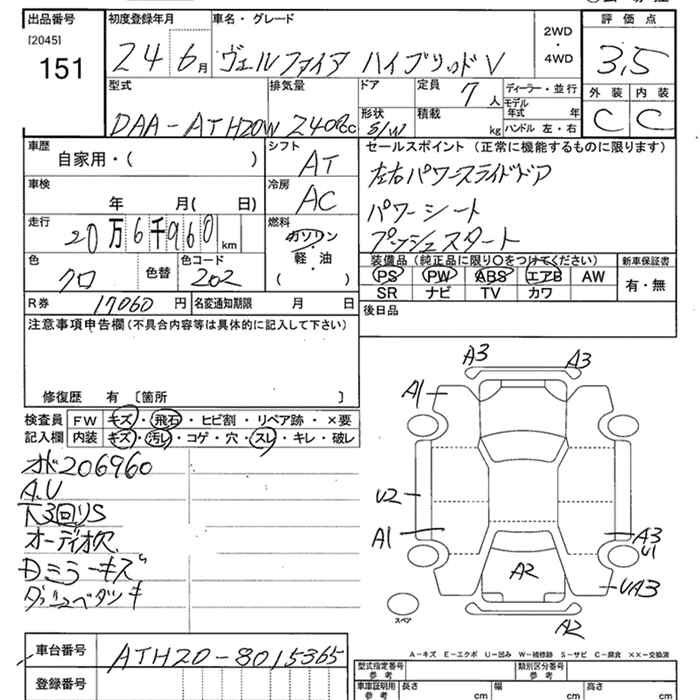 出品番号 初度登録年月 車名・グレード 評価点
[2045] 151
24 6月 ヴェルファイア ハイブリッドV 2WD・4WD 3.5
型式 排気量 ドア 定員 7人 ディーラー・並行 外装 内装
モデル年式 年
DAA-ATH20W 2400cc 形状 S/W 積載 kg ハンドル 左・右 C C
車歴 シフト セールスポイント (正常に機能するものに限ります)
自家用・( ) AT 左右パワースライドドア
車検 冷房
年 月( 日) AC パワーシート
走行 燃料
20万6千960km ガソリン プッシュスタート
・軽・油 ( )
色 色コード 装備品 (純正品に限り○をつけてください) 新車保証書
クロ 色替 202 PS PW ABS エアB AW 有・無
SR ナビ TV カワ
R券 17060円 名変通知期限 月 日 後日品
注意事項申告欄(不具合内容等は具体的に記入して下さい)
修復歴 有 〔箇所 〕
検査員 FW キズ・飛石・ヒビ割・リペア跡・×要
記入欄 内装 キズ・汚レ・コゲ・穴・スレ・キレ・破レ
206960
A.U
下3回りS
オーディオ欠
ミラーキズ
A3 A3
A1
U2
A1 A3
U1
A2 UA3
A2
スペア
A-キズ E-エクボ U-凹み W-補修跡 S-サビ C-腐食 ××-交換済
車台番号 ATH20-8015365
登録番号
型式指定番号 参考 類別区分番号 参考
車庫証明用 参考 長さ cm 幅 cm 高さ cm